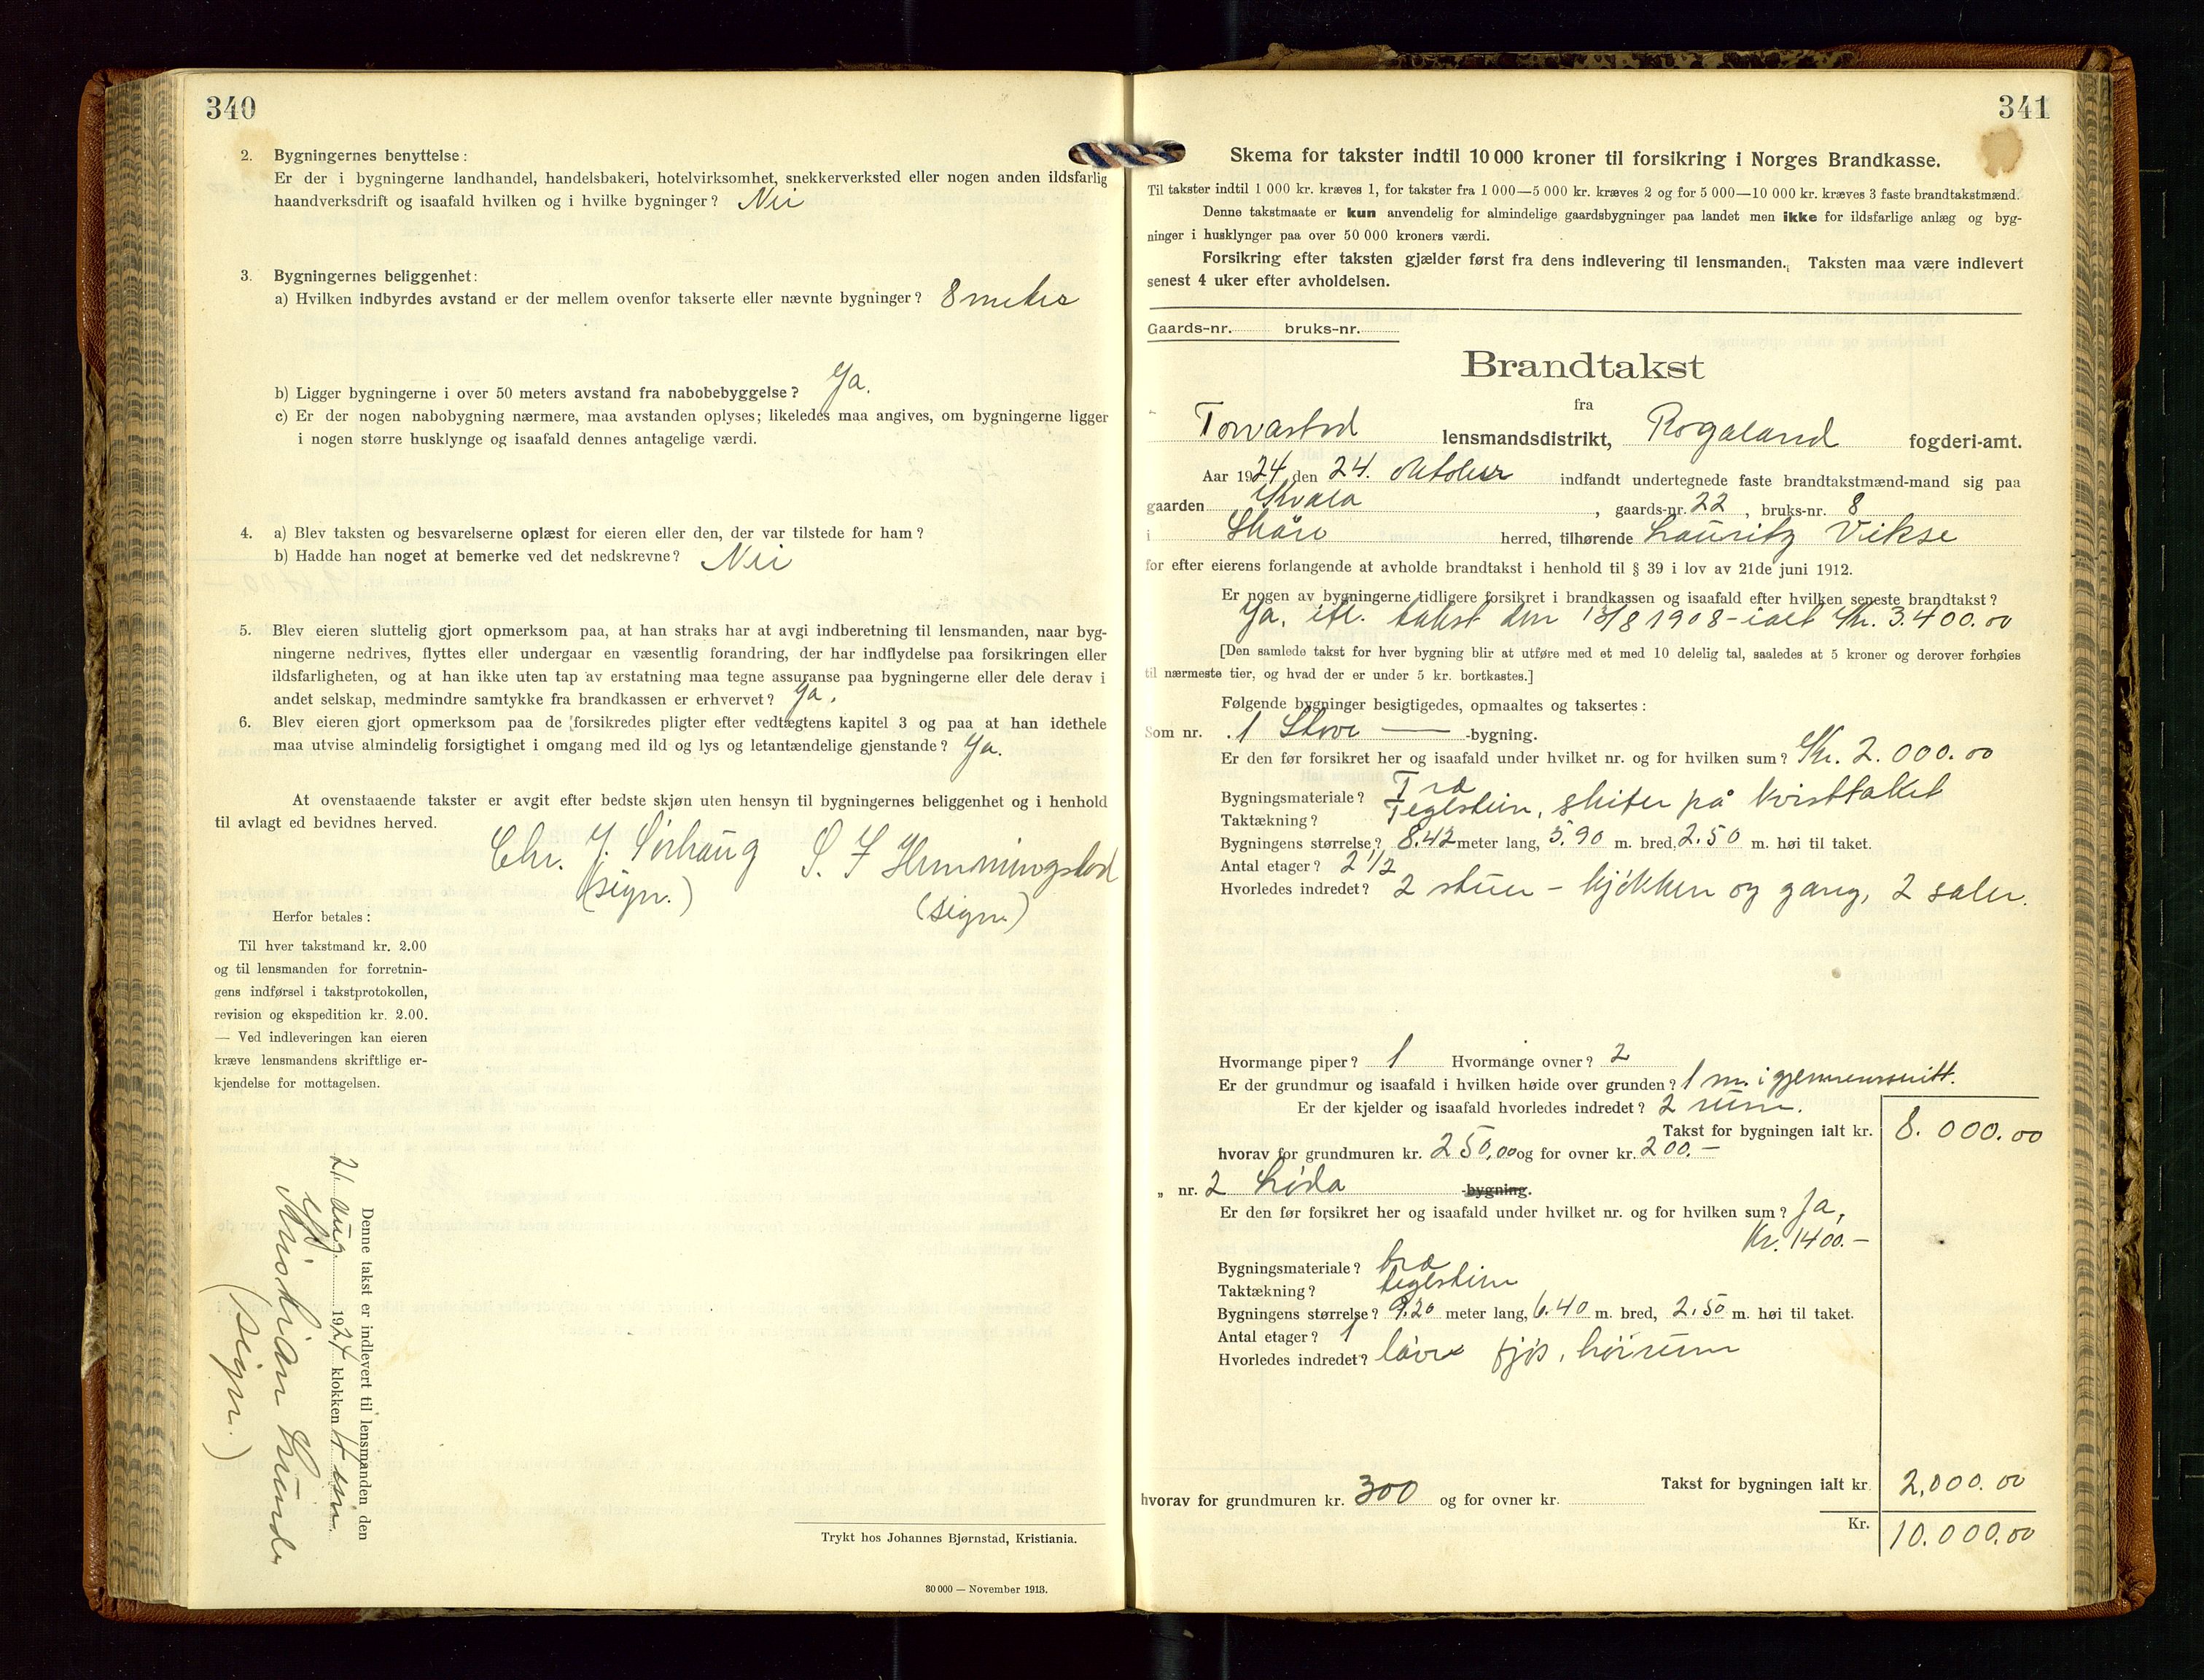 340
2. Bygningernes benyttelse:
Er der i bygningerne landhandel, handelsbakeri, hotelvirksomhet, snekkerverksted eller nogen anden ildsfarlig
haandverksdrift og isaafald hvilken og i hvilke bygninger? Nei
3. Bygningernes beliggenhet:
a) Hvilken indbyrdes avstand er der mellem ovenfor takserte eller nævnte bygninger? 8 meter
b) Ligger bygningerne i over 50 meters avstand fra nabobebyggelse? Ja.
c) Er der nogen nabobygning nærmere, maa avstanden oplyses; likeledes maa angives, om bygningerne ligger
i nogen større husklynge og isaafald dennes antagelige værdi.
4. a) Blev taksten og besvarelserne oplæst for eieren eller den, der var tilstede for ham?
b) Hadde han noget at bemerke ved det nedskrevne? Nei
5. Blev eieren sluttelig gjort opmerksom paa, at han straks har at avgi indberetning til lensmanden, naar byg-
ningerne nedrives, flyttes eller undergaar en væsentlig forandring, der har indflydelse paa forsikringen eller
ildsfarligheten, og at han ikke uten tap av erstatning maa tegne assuranse paa bygningerne eller dele derav i
andet selskap, medmindre samtykke fra brandkassen er erhvervet? Ja.
6. Blev eieren gjort opmerksom paa de forsikredes pligter efter vedtægtens kapitel 3 og paa at han idethele
maa utvise almindelig forsigtighet i omgang med ild og lys og letantændelige gjenstande? Ja.
At ovenstaaende takster er avgit efter bedste skjøn uten hensyn til bygningernes beliggenhet og i henhold
til avlagt ed bevidnes herved.
Chr. J. Sørhaug S. F Hemmingstad
(sign.) (sign.)
Herfor betales:
Til hver takstmand kr. 2.00
og til lensmanden for forretnin-
gens indførsel i takstprotokollen,
revision og ekspedition kr. 2.00.
— Ved indleveringen kan eieren
kræve lensmandens skriftlige er-
kjendelse for mottagelsen.
Denne takst er indlevert til lensmanden den
21. aug. 1924 klokken 4 em.
eft.
Kristian Lunde
(sign.)
Trykt hos Johannes Bjørnstad, Kristiania.
30 000 — November 1913.
341
Skema for takster indtil 10 000 kroner til forsikring i Norges Brandkasse.
Til takster indtil 1 000 kr. kræves 1, for takster fra 1 000—5 000 kr. kræves 2 og for 5 000—10 000 kr. kræves 3 faste brandtakstmænd.
Denne takstmaate er kun anvendelig for almindelige gaardsbygninger paa landet men ikke for ildsfarlige anlæg og byg-
ninger i husklynger paa over 50 000 kroners værdi.
Forsikring efter taksten gjælder først fra dens indlevering til lensmanden. Taksten maa være indlevert
senest 4 uker efter avholdelsen.
Gaards-nr. bruks-nr.
Brandtakst
fra
Torvastad lensmandsdistrikt, Rogaland fogderi-amt.
Aar 1924 den 24. oktober indfandt undertegnede faste brandtakstmænd-mand sig paa
gaarden Kvala, gaards-nr. 22, bruks-nr. 8
i Skåre herred, tilhørende Lauritz Vikse
for efter eierens forlangende at avholde brandtakst i henhold til § 39 i lov av 21de juni 1912.
Er nogen av bygningerne tidligere forsikret i brandkassen og isaafald efter hvilken seneste brandtakst?
Ja, efl. takst den 13/8 1908 - ialt Kr. 3.400.00
[Den samlede takst for hver bygning blir at utføre med et med 10 delelig tal, saaledes at 5 kroner og derover forhøies
til nærmeste tier, og hvad der er under 5 kr. bortkastes.]
Følgende bygninger besigtigedes, opmaaltes og taksertes:
Som nr. 1 Stove — -bygning.
Er den før forsikret her og isaafald under hvilket nr. og for hvilken sum? Kr. 2.000.00
Bygningsmateriale? Træ
Taktækning? Teglstein, skifer på kvisttaket
Bygningens størrelse? 8.42 meter lang, 5.90 m. bred, 2.50 m. høi til taket.
Antal etager? 2 1/2
Hvorledes indredet? 2 stuer - kjøkken og gang, 2 saler.
Hvormange piper? 1 Hvormange ovner? 2
Er der grundmur og isaafald i hvilken høide over grunden? 1 m. i gjennemsnitt.
Er der kjelder og isaafald hvorledes indredet? 2 rum.
Takst for bygningen ialt kr. 8.000.00
hvorav for grundmuren kr. 250,00 og for ovner kr. 200.-
„ nr. 2 Løda -bygning.
Er den før forsikret her og isaafald under hvilket nr. og for hvilken sum? Ja,
Kr. 1400.-
Bygningsmateriale? træ
Taktækning? teglstein
Bygningens størrelse? 9.20 meter lang, 6.40 m. bred, 2.50 m. høi til taket.
Antal etager? 1
Hvorledes indredet? låve fjøs, høirum
Takst for bygningen ialt kr. 2,000.00
hvorav for grundmuren kr. 300 og for ovner kr.
Kr. 10.000.00